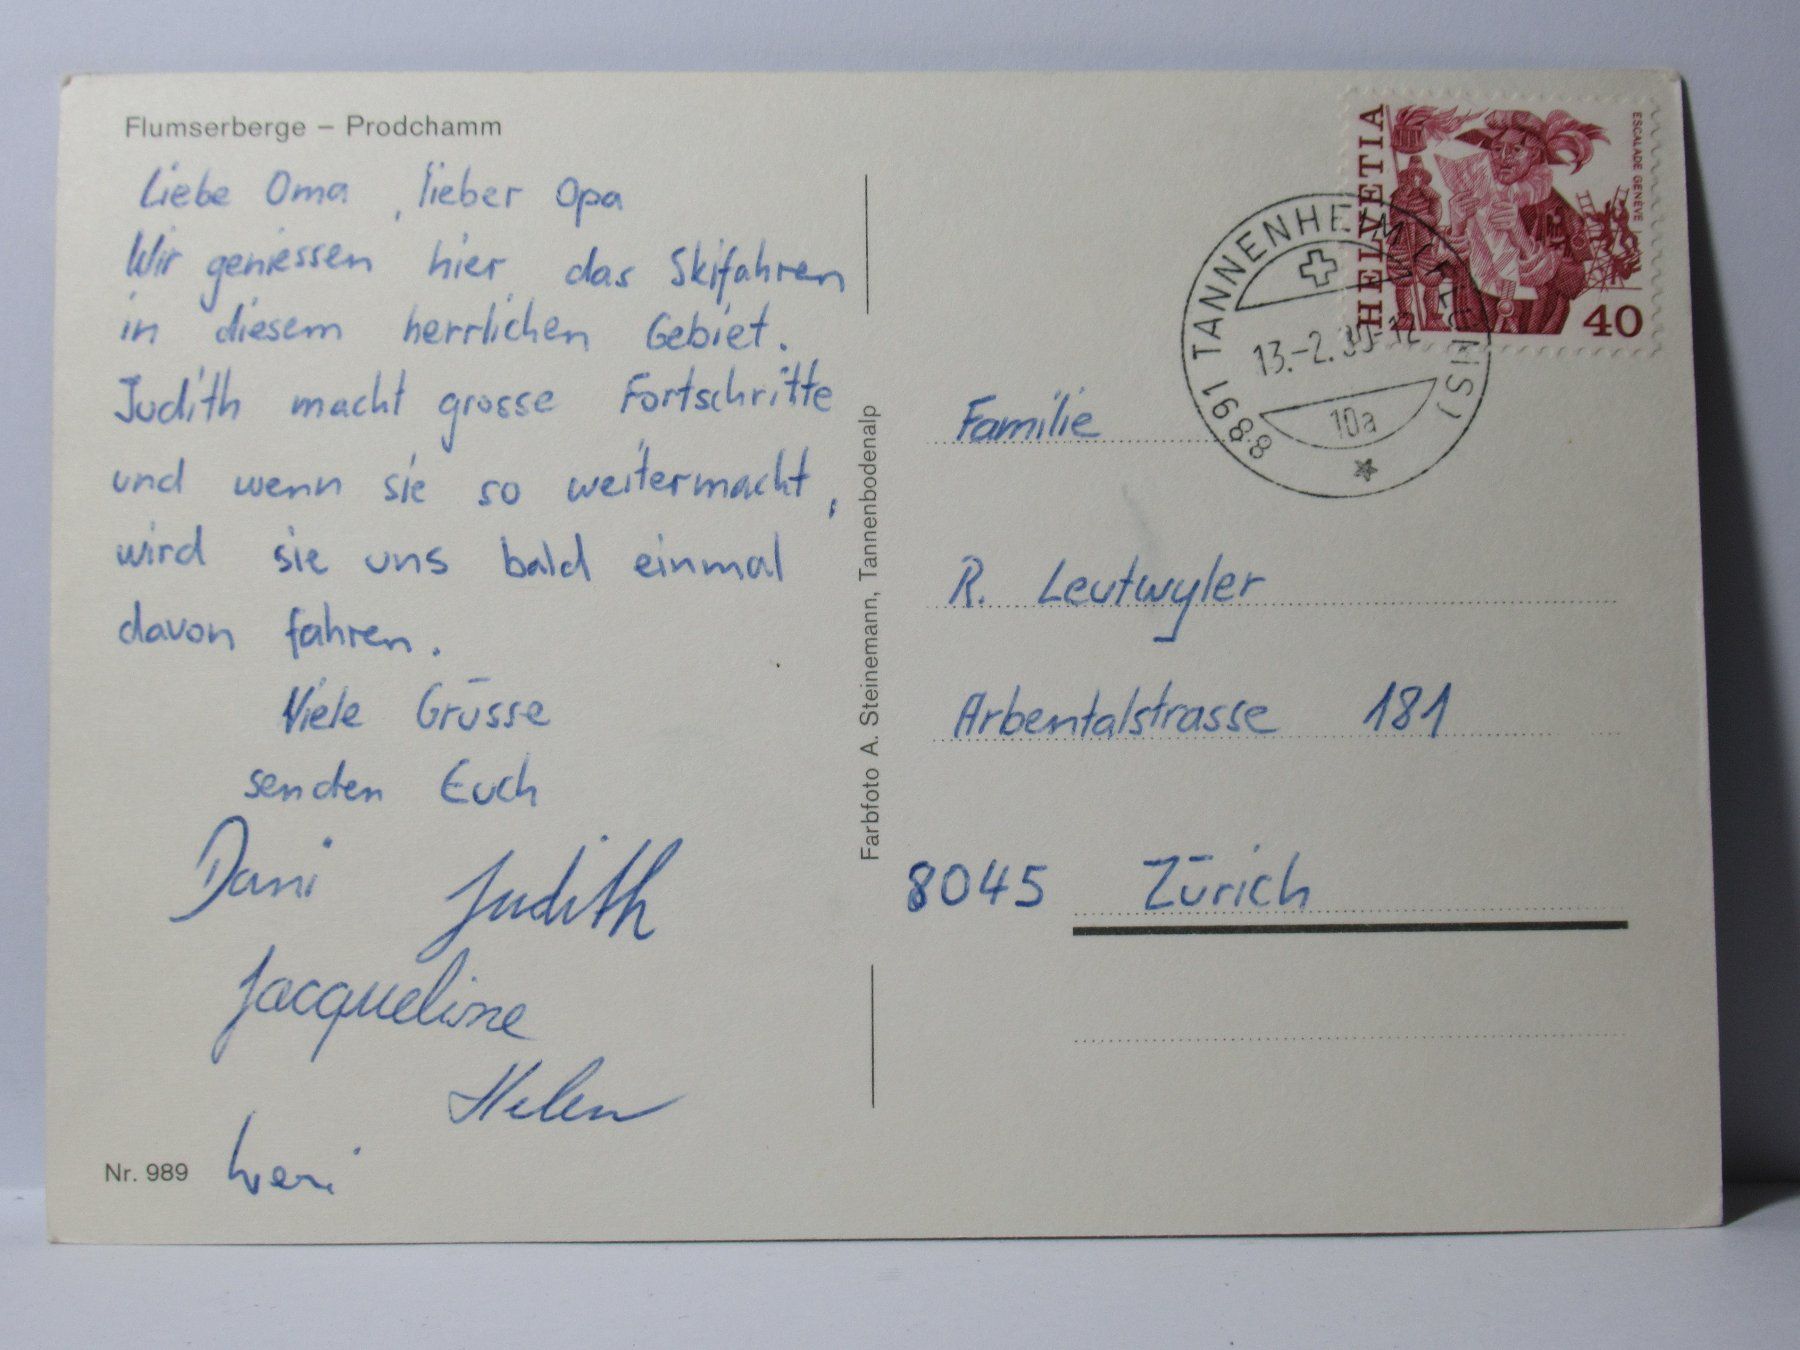 Flumserberge – Prodchamm
Liebe Oma, lieber Opa
Wir geniessen hier das Skifahren
in diesem herrlichen Gebiet.
Judith macht grosse Fortschritte
und wenn sie so weitermacht,
wird sie uns bald einmal
davon fahren.
Viele Grüsse
senden Euch
Dani Judith
Jacqueline
Helen
Nr. 989
Farbfoto A. Steinemann, Tannenbodenalp
HELVETIA
ESCALADE GENEVE
40
8891 TANNENHEIM
13.-2.
10a
Familie
R. Leutwyler
Arbentalstrasse 181
8045 Zürich